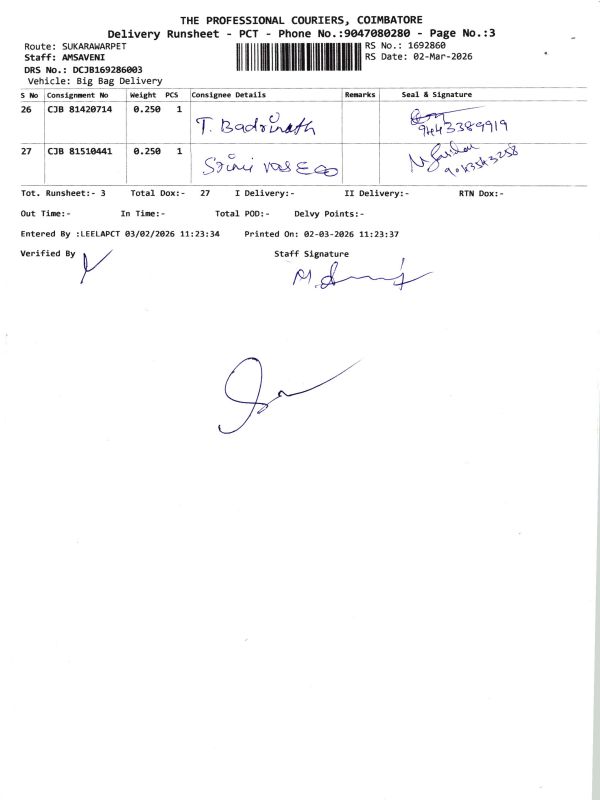 THE PROFESSIONAL COURIERS, COIMBATORE
Delivery Runsheet - PCT - Phone No.:9047080280 - Page No.:3
Route: SUKARAWARPET
RS No.: 1692860
Staff: AMSAVENI
RS Date: 02-Mar-2026
DRS No.: DCJB169286003
Vehicle: Big Bag Delivery
S No Consignment No Weight PCS Consignee Details Remarks Seal & Signature
26 CJB 81420714 0.250 1 T. Badrinath 9443389919
27 CJB 81510441 0.250 1
Tot. Runsheet:- 3 Total Dox:- 27 I Delivery:- II Delivery:- RTN Dox:-
Out Time:- In Time:- Total POD:- Delvy Points:-
Entered By :LEELAPCT 03/02/2026 11:23:34 Printed On: 02-03-2026 11:23:37
Verified By Staff Signature